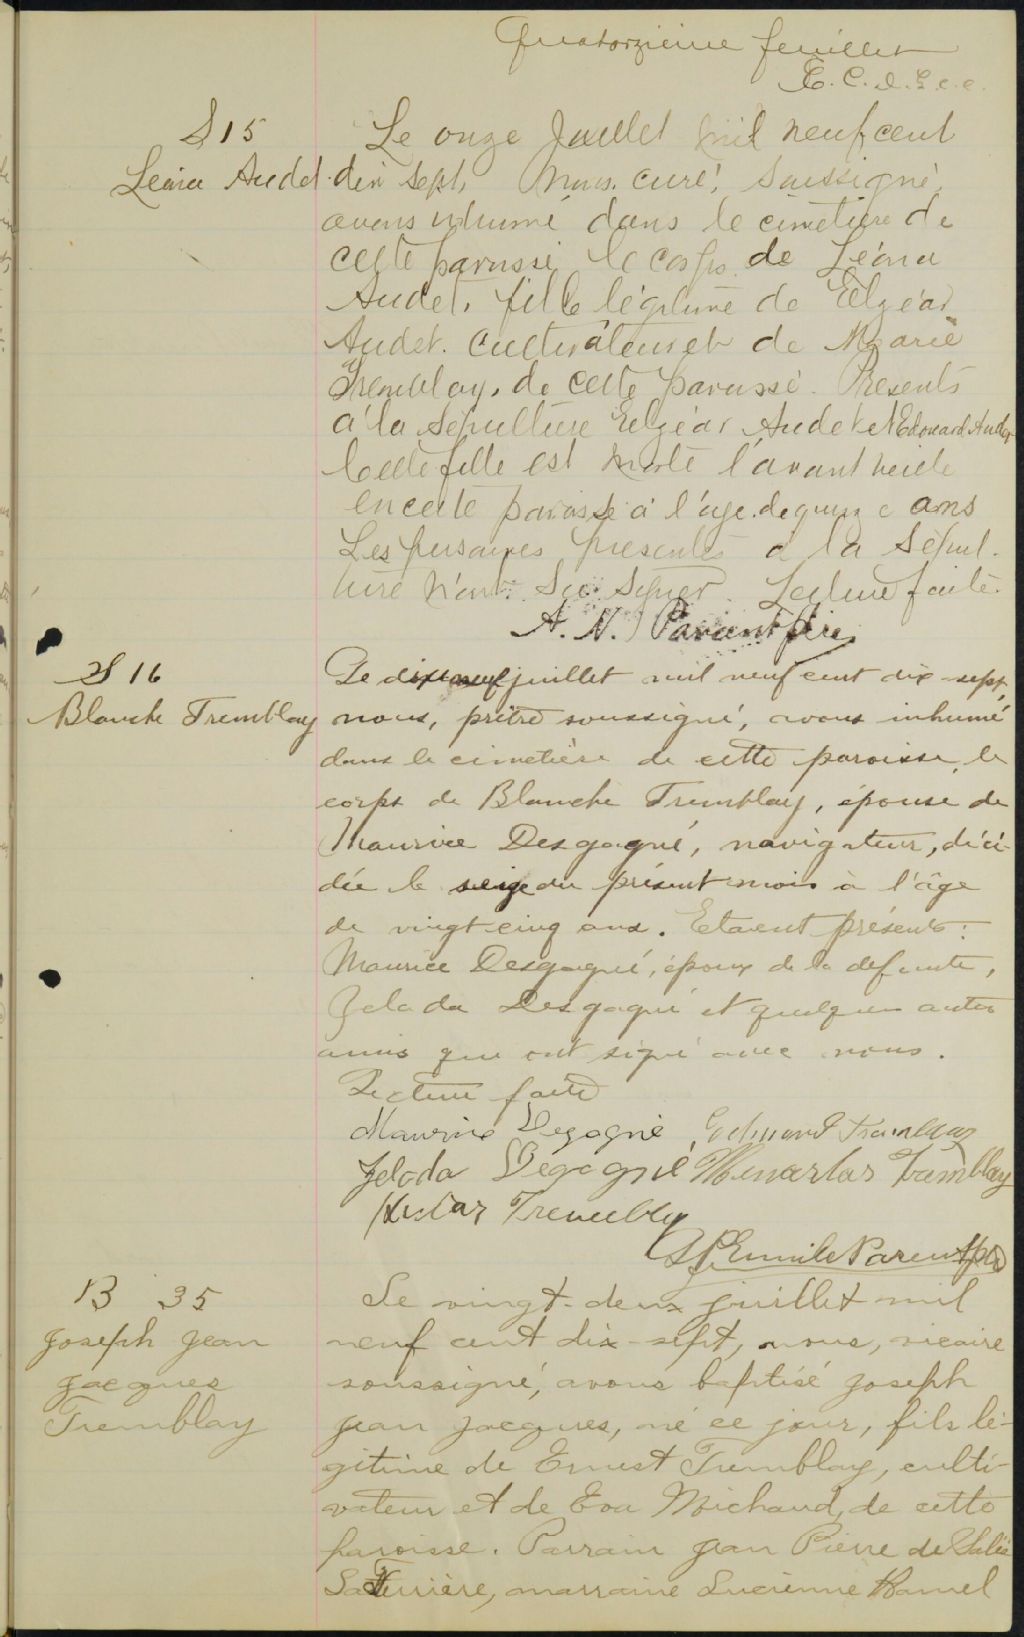 Quatorzième feuillet
S 15
Léona Audet
Le onze Juillet mil neuf cent
dix sept, Nous, curé, soussigné,
avons inhumé dans le cimetière de
cette paroisse le corps de Léona
Audet, fille légitime de Elzéar
Audet. Cultivateur et de Marie
Tremblay, de cette paroisse. Présents
à la sépulture Elzéar Audet et Edouard Audet
Cette fille est morte l'avant veille
en cette paroisse à l'age de quinze ans
Les personnes présentes à la Sépul-
ture n'ont su signer. Lecture faite.
A. N. Parent ptre.
S 16
Blanche Tremblay
Le dix neuf juillet mil neuf cent dix-sept,
nous, prêtre soussigné, avons inhumé
dans le cimetière de cette paroisse, le
corps de Blanche Tremblay, épouse de
Maurice Desgagné, navigateur, décé-
dée le seize du présent mois à l'âge
de vingt-cinq ans. Etaient présents:
Maurice Desgagné, époux de la defunte,
Zelada Desgagné et quelques autres
amis qui ont signé avec nous.
Lecture faite
Maurice Degagné Edmond Tremblay
Zelada Degagné Tremblay
Tremblay
Emile Parent ptre
B 35
Joseph Jean
Jacques
Tremblay
Le vingt-deux juillet mil
neuf cent dix-sept, nous, vicaire
soussigné, avons baptisé Joseph
Jean Jacques, né ce jour, fils lé-
gitime de Ernest Tremblay, culti-
vateur et de Eva Michaud, de cette
paroisse. Parrain Jean Pierre de Sales
Laterrière, marraine Lucienne Hamel